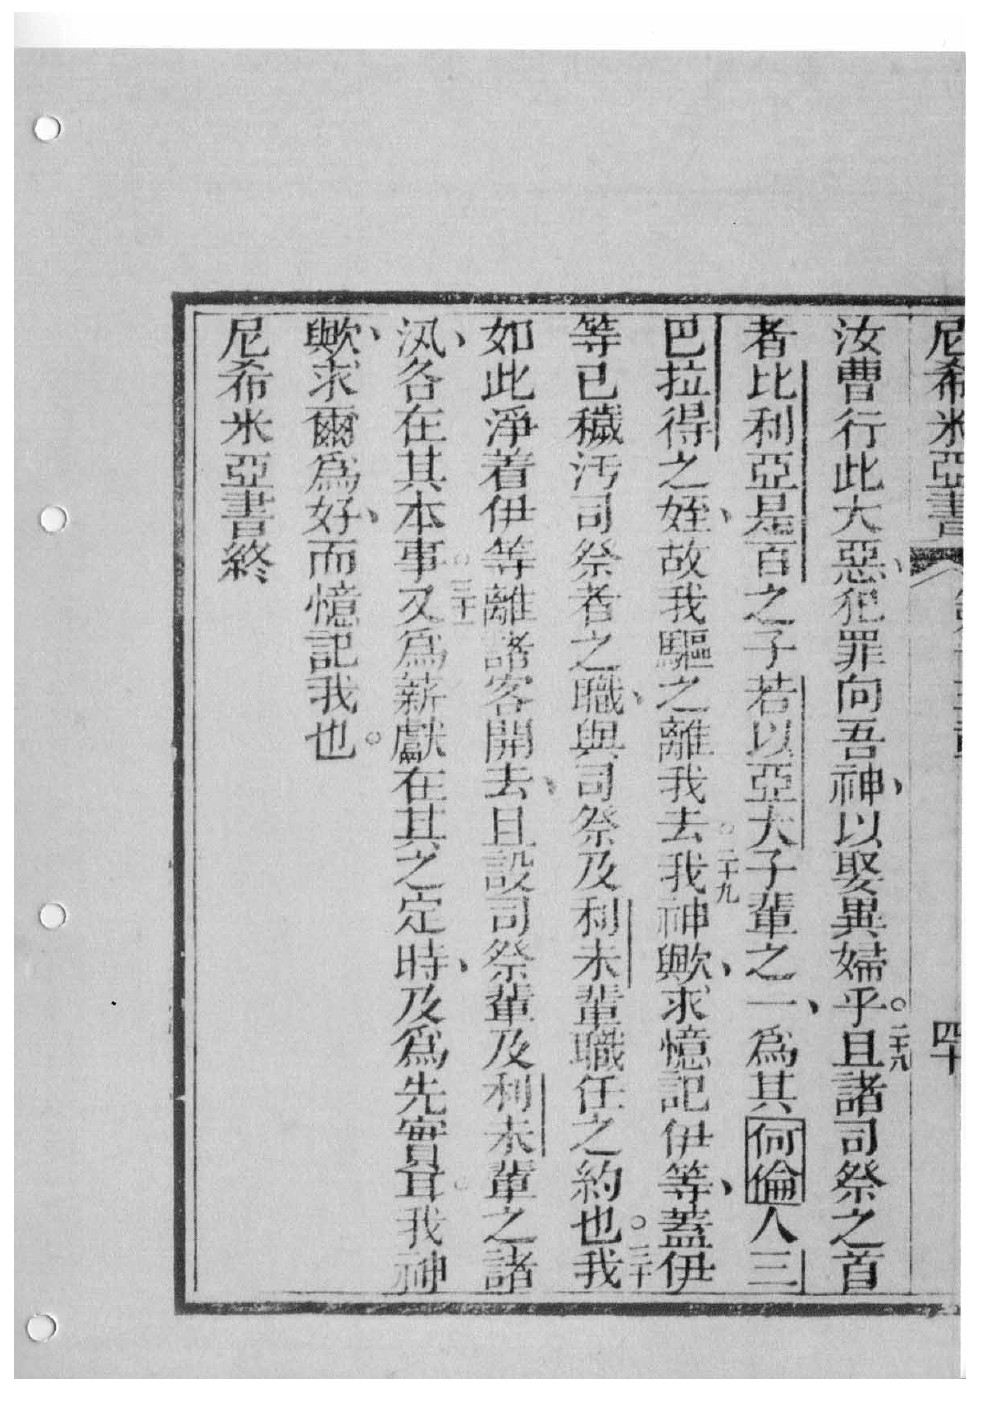 尼希米亞書 四十
汝曹行此大惡、犯罪向吾神、以娶異婦乎。二十八且諸司祭之首
者比利亞是百之子若以亞大子輩之一、爲其何倫人三
巴拉得之姪、故我驅之離我去。二十九我神歟、求憶記伊等、蓋伊
等已穢汚司祭者之職、與司祭及利未輩職任之約也。三十我
如此淨着伊等離諸客開去、且設司祭輩及利未輩之諸
汛、各在其本事。三十一又爲薪獻在其之定時、及爲先實耳。我神
歟、求爾爲好、而憶記我也。
尼希米亞書終